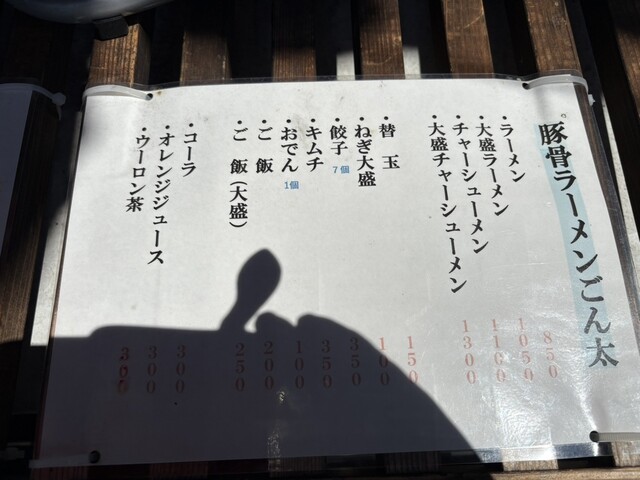 豚骨ラーメンごん太
・ラーメン 850
・大盛ラーメン 1050
・チャーシューメン 1100
・大盛チャーシューメン 1300
・替玉 150
・ねぎ大盛 100
・餃子 7個 350
・キムチ 350
・おでん 1個 100
・ご飯 200
・ご飯(大盛) 250
・コーラ 300
・オレンジジュース 300
・ウーロン茶 300